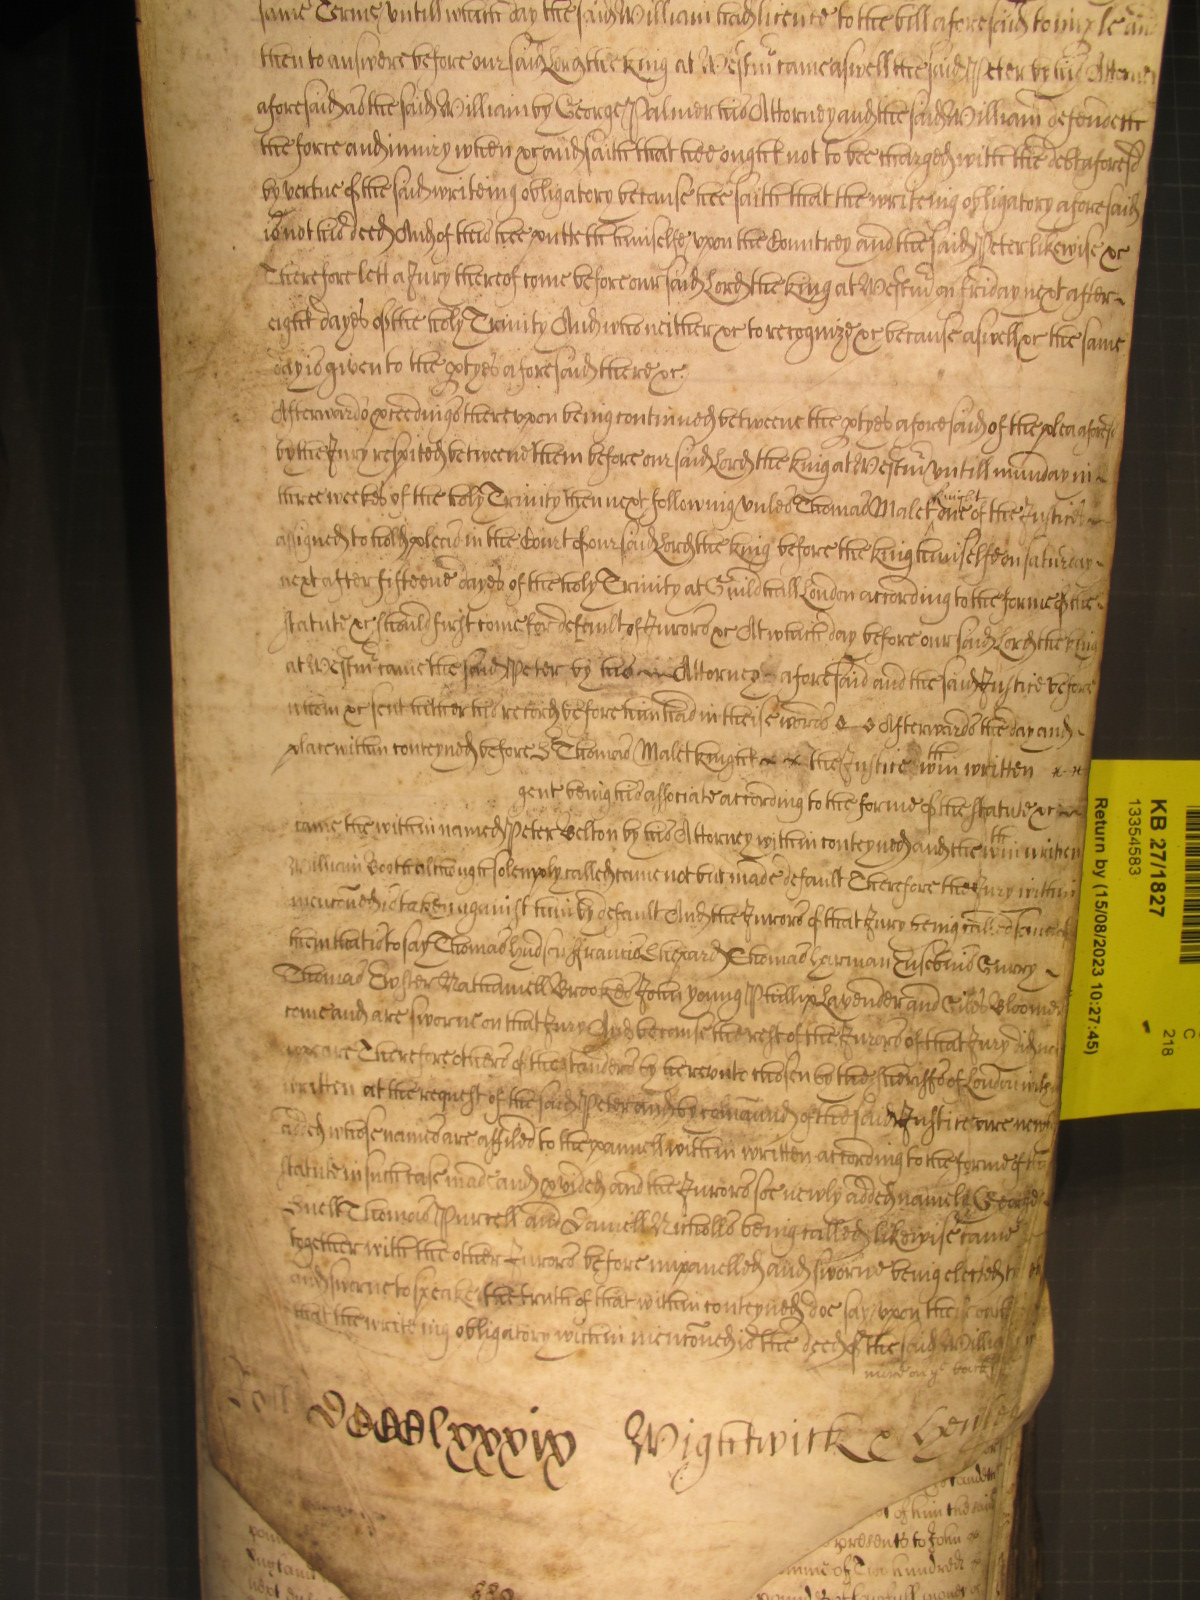 same Terme untill which day the said William had licence to the bill aforesaid to imple and
then to answere before our said Lord the king at Westmr came aswell the said Peter by his Attorney
aforesaid as the said William by George Palmer his Attorney and the said William defendeth
the force and iniury when &c and saith that hee ought not to bee charged with the debt aforesd
by vertue of the said writeing obligatory because hee saith that the writeing obligatory aforesaid
is not his deed And of this hee putteth himselfe upon the Countrey and the said Peter likewise &c
Therefore lett a Jury thereof come before our said Lord the king at Westmr on friday next after
eight dayes of the holy Trinity And who neither &c to recognize &c because aswell &c the same
day is given to the ptyes aforesaid there &c
Afterwards pceedings thereupon being continued betweene the ptyes aforesaid of the plea aforesd
by the Jury respited betweene them before our said Lord the king at Westmr untill munday in
three weekes of the holy Trinity then next following unles Thomas Malet knight one of the Justices
assigned to hold pleas in the Court of our said Lord the king before the king himselfe on saturday
next after fifteene dayes of the holy Trinity at Guildhall London according to the forme of the
statute &c should first come for default of Jurors &c At which day before our said Lord the king
at Westmr came the said Peter by his Attorney aforesaid and the said Justice before
whom &c sent hither his record before him had in theise words Afterwards the day and
place within conteyned before Thomas Malet knight the Justice within written
gent being his associate according to the forme of the statute &c
came the within named Peter Belton by his Attorney within conteyned and the within written
William Booth although solemply called came not but made default Therefore the Jury within
menconed is taken against him by default And the Jurors of that Jury being called some of
them that is to say Thomas Hudson Francis Shepard Thomas Harman Eusebius Gurry
Thomas Ewster Nathaniell Brookes John Young Phillip Lavender and Giles Bloomer
come and are sworne on that Jury And because the rest of the Jurors of that Jury did not
appeare Therefore others of the standers by hereunto chosen by the sheriffs of London within
written at the request of the said Peter and by comaund of the said Justice are newly
added whose names are affiled to the pannell within written according to the forme of the
statute in such case made and pvided and the Jurors soe newly added namely George
Snell Thomas Purcell and Daniell Nicholls being called likewise came
together with the other Jurors before impanelled and sworne being elected
and sworne to speake the truth of that within conteyned doe say upon their oath
that the writeing obligatory within menconed is the deed of the said William
more on ye back
Wightwick
KB 27/1827
13354583
Return by (15/08/2023 10:27:45)
C
218